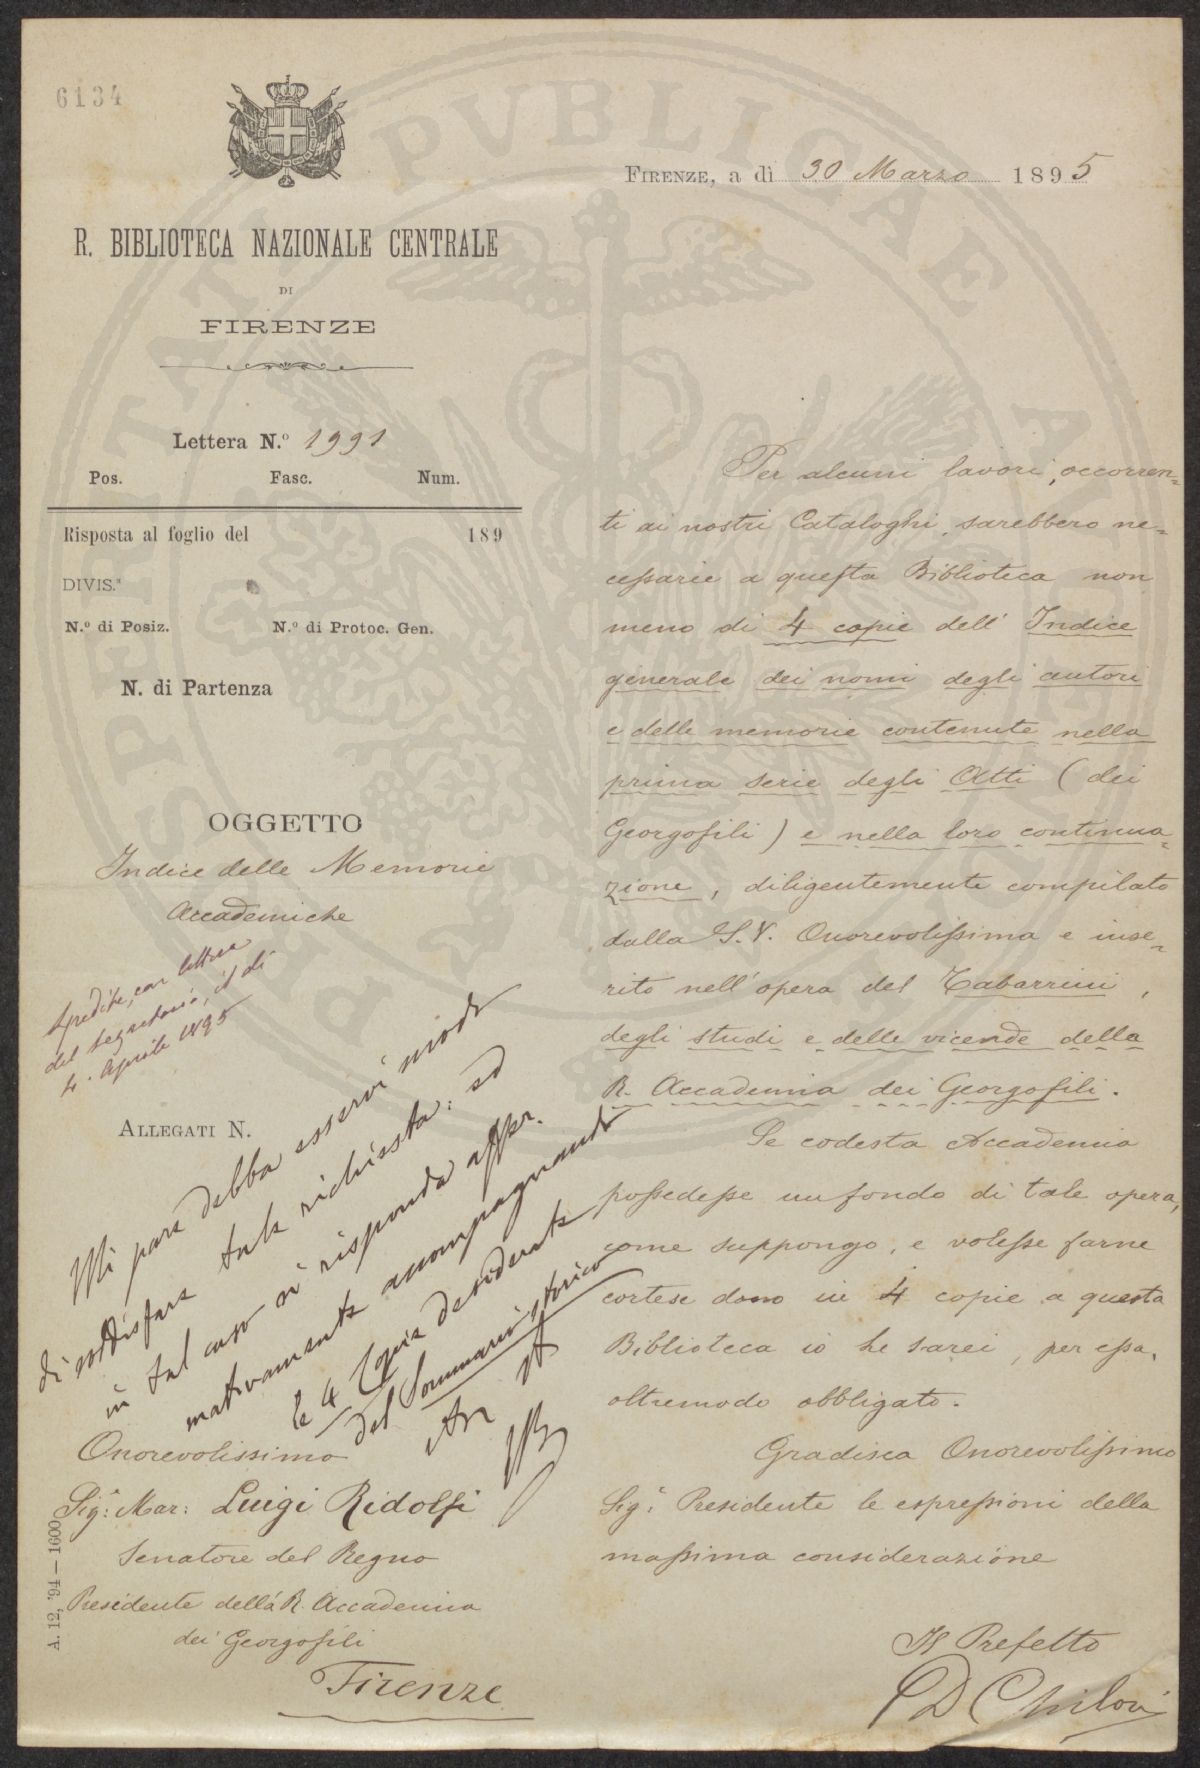 6134
FIRENZE, a dì 30 Marzo 1895
R. BIBLIOTECA NAZIONALE CENTRALE
DI
FIRENZE
Lettera N.º 1991
Pos. Fasc. Num.
Risposta al foglio del 189
DIVIS.ª
N.º di Posiz. N.º di Protoc. Gen.
N. di Partenza
OGGETTO
Indice delle Memorie
Accademiche
Spedite, con lettera
del segretario, il dì
4. Aprile 1895
ALLEGATI N.
Mi pare debba esservi modo
di soddisfare tale richiesta: ed
in tal caso si risponda affer-
mativamente accompagnando
le 4 Copie desiderate
del Sommario storico
Onorevolissimo
Sig.r Mar: Luigi Ridolfi
Senatore del Regno
Presidente della R. Accademia
dei Georgofili
Firenze
A. 12, '94 — 1600
Per alcuni lavori, occorren-
ti ai nostri Cataloghi, sarebbero ne-
cessarie a questa Biblioteca non
meno di 4 copie dell' Indice
generale dei nomi degli autori
e delle memorie contenute nella
prima serie degli Atti (dei
Georgofili) e nella loro continua-
zione, diligentemente compilato
dalla S. V. Onorevolissima e inse-
rito nell'opera del Tabarrini,
degli studi e delle vicende della
R. Accademia dei Georgofili.
Se codesta Accademia
possedesse un fondo di tale opera,
come suppongo, e volesse farne
cortese dono in 4 copie a questa
Biblioteca io le sarei, per essa,
oltremodo obbligato.
Gradisca Onorevolissimo
Sig.r Presidente le espressioni della
massima considerazione
Il Prefetto
D Chilovi
PROSPERITATI PVBLICAE AVGENDAE